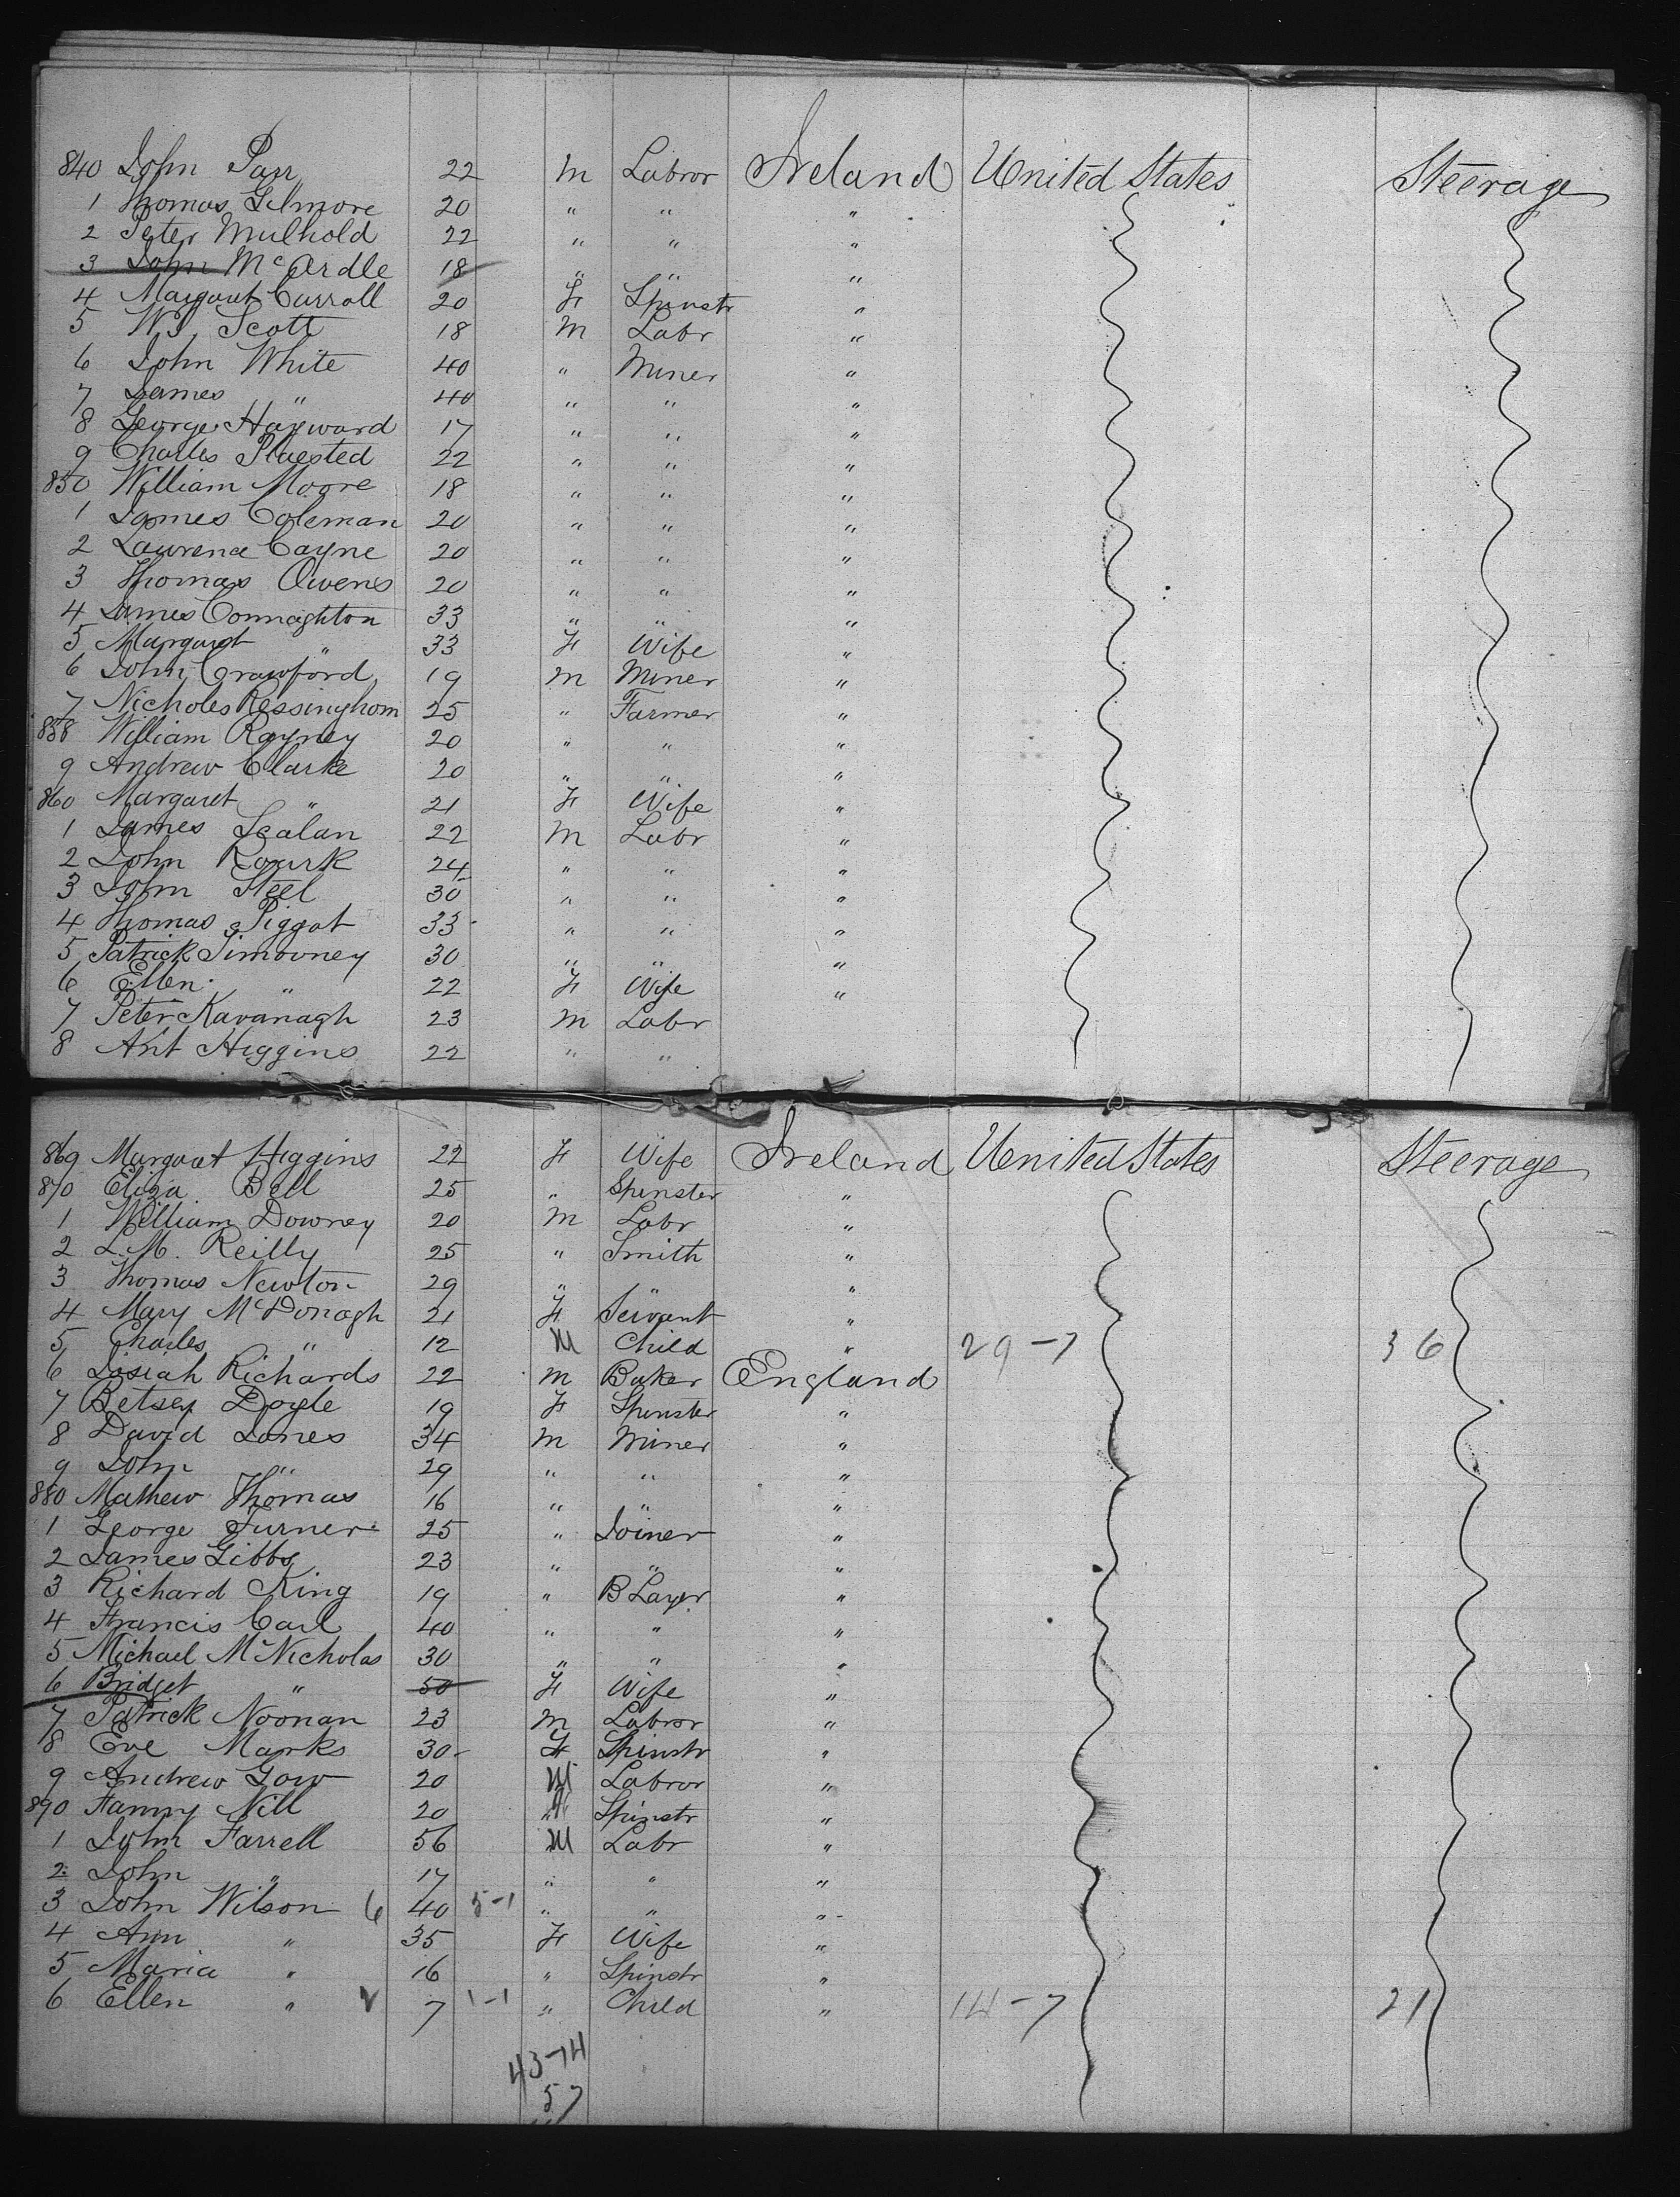 840 John Parr 22 M Labror Ireland United States Steerage
1 Thomas Gilmore 20 " " "
2 Peter Mulhold 22 " " "
3 John McArdle 18 " " "
4 Margaret Carroll 20 F Spinstr "
5 Wm Scott 18 M Labr "
6 John White 40 " Miner "
7 James " 40 " " "
8 George Hayward 17 " " "
9 Charles Pluested 22 " " "
850 William Moore 18 " " "
1 James Coleman 20 " " "
2 Laurence Cayne 20 " " "
3 Thomas Owens 20 " " "
4 James Connaghton 33 " " "
5 Margaret " 33 F Wife "
6 John Crawford 19 M Miner "
7 Nicholes Ressinghom 25 " Farmer "
858 William Rayney 20 " " "
9 Andrew Clarke 20 " " "
860 Margaret " 21 F Wife "
1 James Scalan 22 M Labr "
2 John Rourk 24 " " "
3 John Steel 30 " " "
4 Thomas Piggot 33 " " "
5 Patrick Timovney 30 " " "
6 Ellen " 22 F Wife "
7 Peter Kavanagh 23 M Labr
8 Ant Higgins 22 " "
869 Margaret Higgins 22 F Wife Ireland United States Steerage
870 Eliza Bell 25 " Spinster "
1 William Downey 20 M Labr "
2 L.M. Reilly 25 " Smith "
3 Thomas Newton 29 " " "
4 Mary McDonagh 21 F Servant "
5 Charles " 12 M Child " 29-7 36
6 Josiah Richards 22 M Baker England
7 Betsey Doyle 19 F Spinster "
8 David Jones 34 M Miner "
9 John " 29 " " "
880 Mathew Thomas 16 " " "
1 George Turner 25 " Joiner "
2 James Gibbs 23 " " "
3 Richard King 19 " B Layer "
4 Francis Carl 40 " " "
5 Michael McNicholas 30 " " "
6 Bridget " 50 F Wife "
7 Patrick Noonan 23 M Labror "
8 Eve Marks 30 F Spinstr "
9 Andrew Gow 20 M Labror "
890 Fanny Nill 20 Spinstr "
1 John Farrell 56 M Labr "
2 John " 17 " " "
3 John Wilson 6 40 5-1 " " "
4 Ann " 35 F Wife "
5 Maria " 16 " Spinstr "
6 Ellen " 7 1-1 " Child " 14-7 21
43-14
57